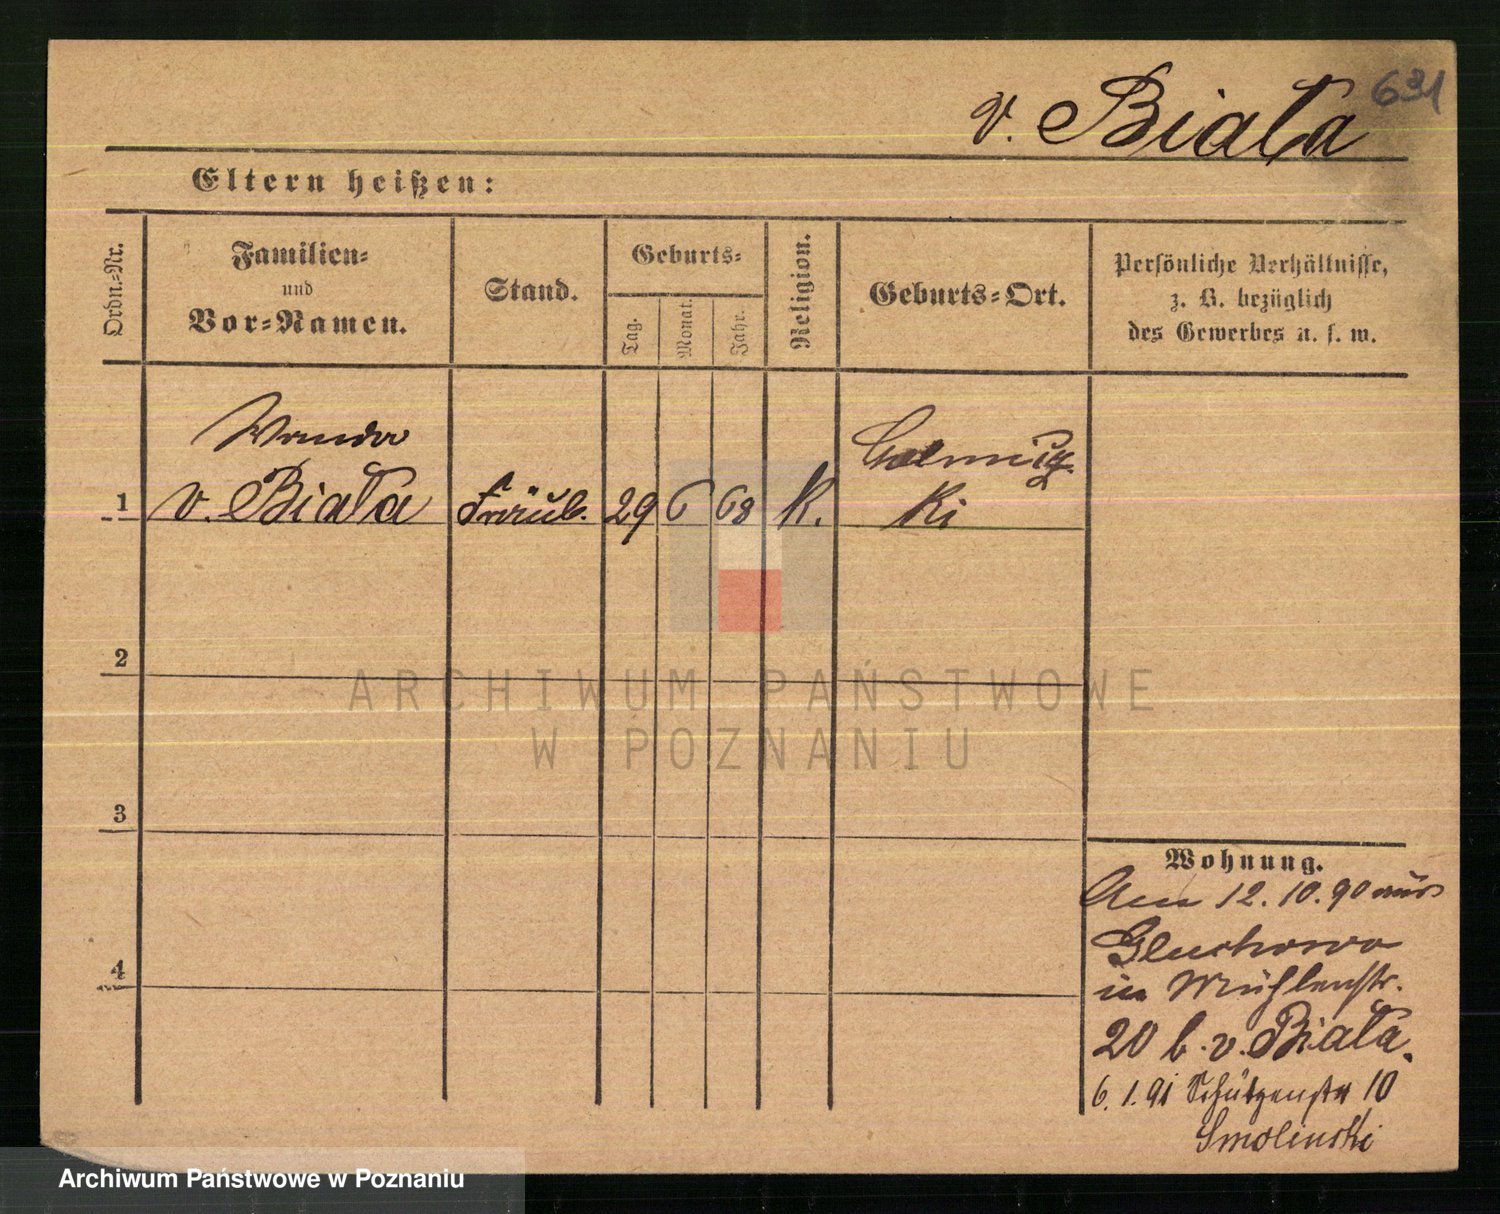 631
v. Biała
Eltern heißen:
Ordn.-Nr.
Familien-
und
Vor-Namen.
Stand.
Geburts-
Tag.
Monat.
Jahr.
Religion.
Geburts-Ort.
Persönliche Verhältnisse,
z. B. bezüglich
des Gewerbes u. s. w.
Wanda
1 v. Biała Fräul. 29 6 68 K.
ki
2
3
4
Wohnung.
Am 12. 10. 90 aus
Gluchowo
in Mühlenstr.
20 b. v. Biała.
6. 1. 91 Schützenstr 10
Smolinski
ARCHIWUM PAŃSTWOWE
W POZNANIU
Archiwum Państwowe w Poznaniu